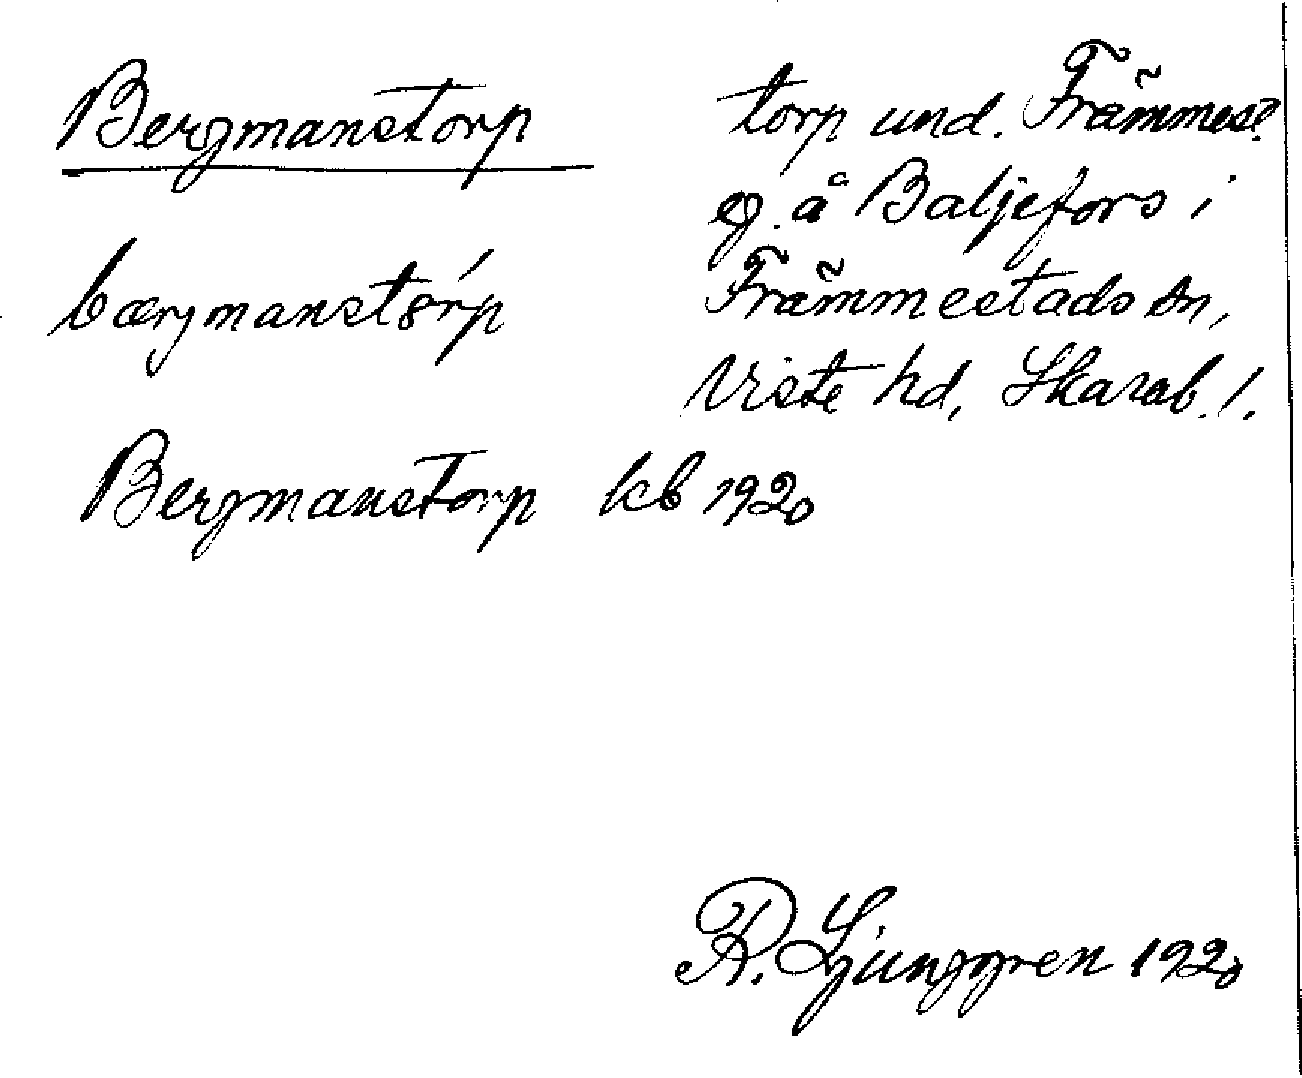 Bergmanstorp
torp und. Främmest.
eg. å Baljefors i
bærgmanstorp
Främmestads sn,
Viste hd, Skarab. l.
Bergmanstorp kb 1920
R. Ljunggren 1920